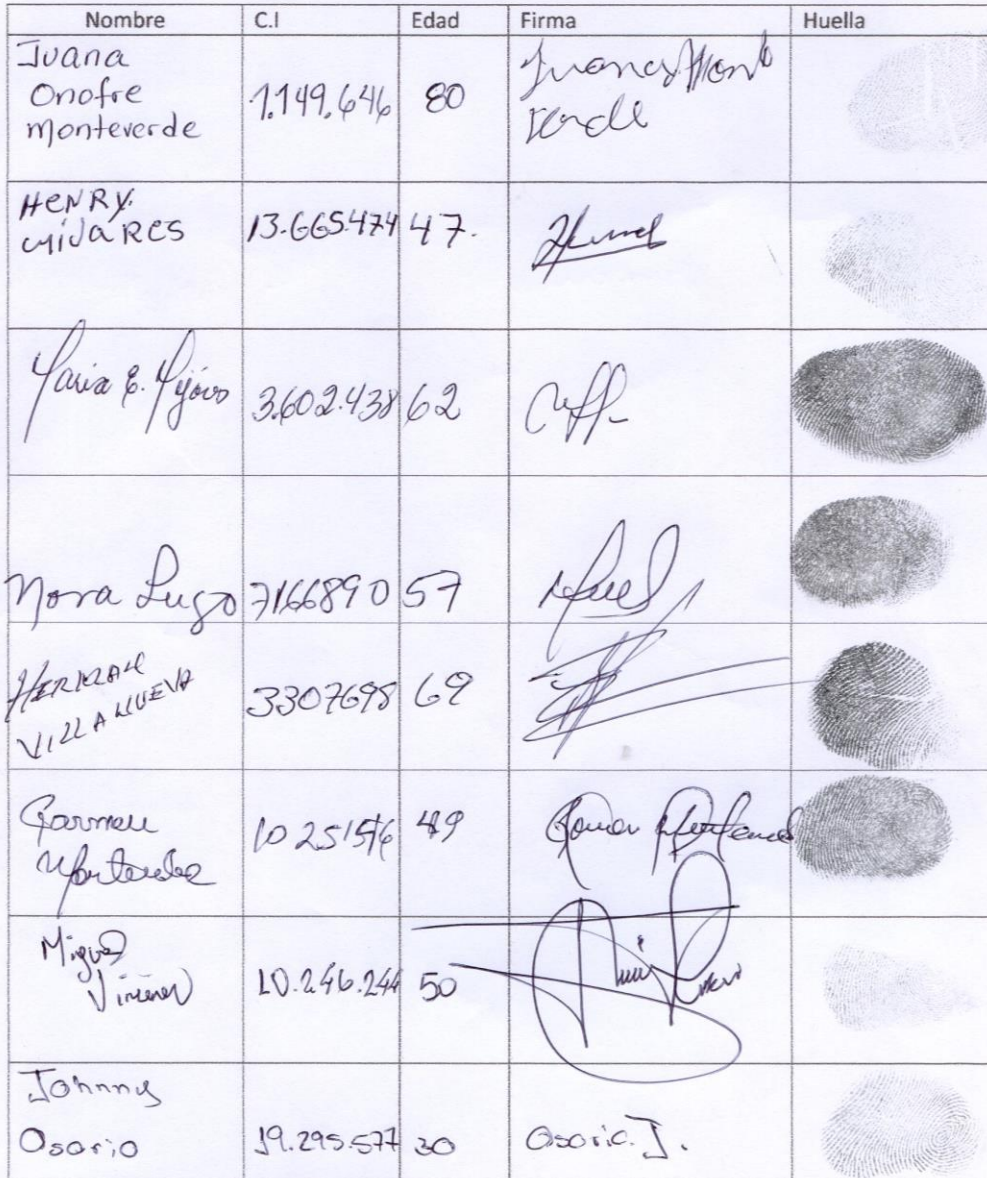 Nombre C.I Edad Firma Huella
Juana
Onofre
monteverde
1.149.646 80
HENRY.
MIJARES
13.665.474 47.
Maria E. Mijares
3.602.438 62
Nora Lugo 7166890 57
HERNAN
VILLANUEVA
3307698 69
Carmen
10251576 49
Miguel
Jimenez
10.246.244 50
Johnny
Osorio 19.295.577 30 Osorio. J.